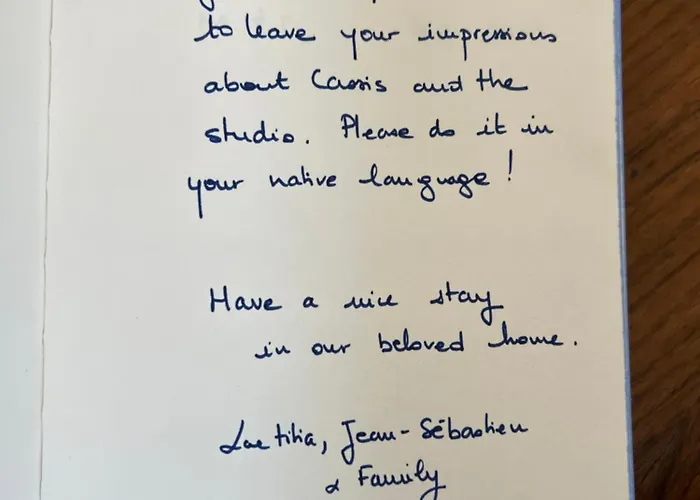 to leave your impressions
about Cassis and the
studio. Please do it in
your native language!
Have a nice stay
in our beloved home.
Laetitia, Jean-Sébastien
& Family